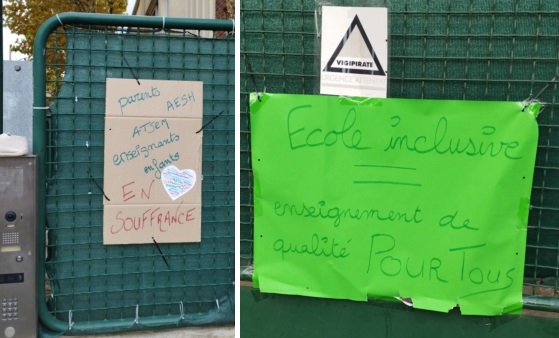 parents
AESH
ATSEM
enseignants
enfants
EN
SOUFFRANCE
VIGIPIRATE
Ecole inclusive
=
enseignement de
qualité POUR TOUS